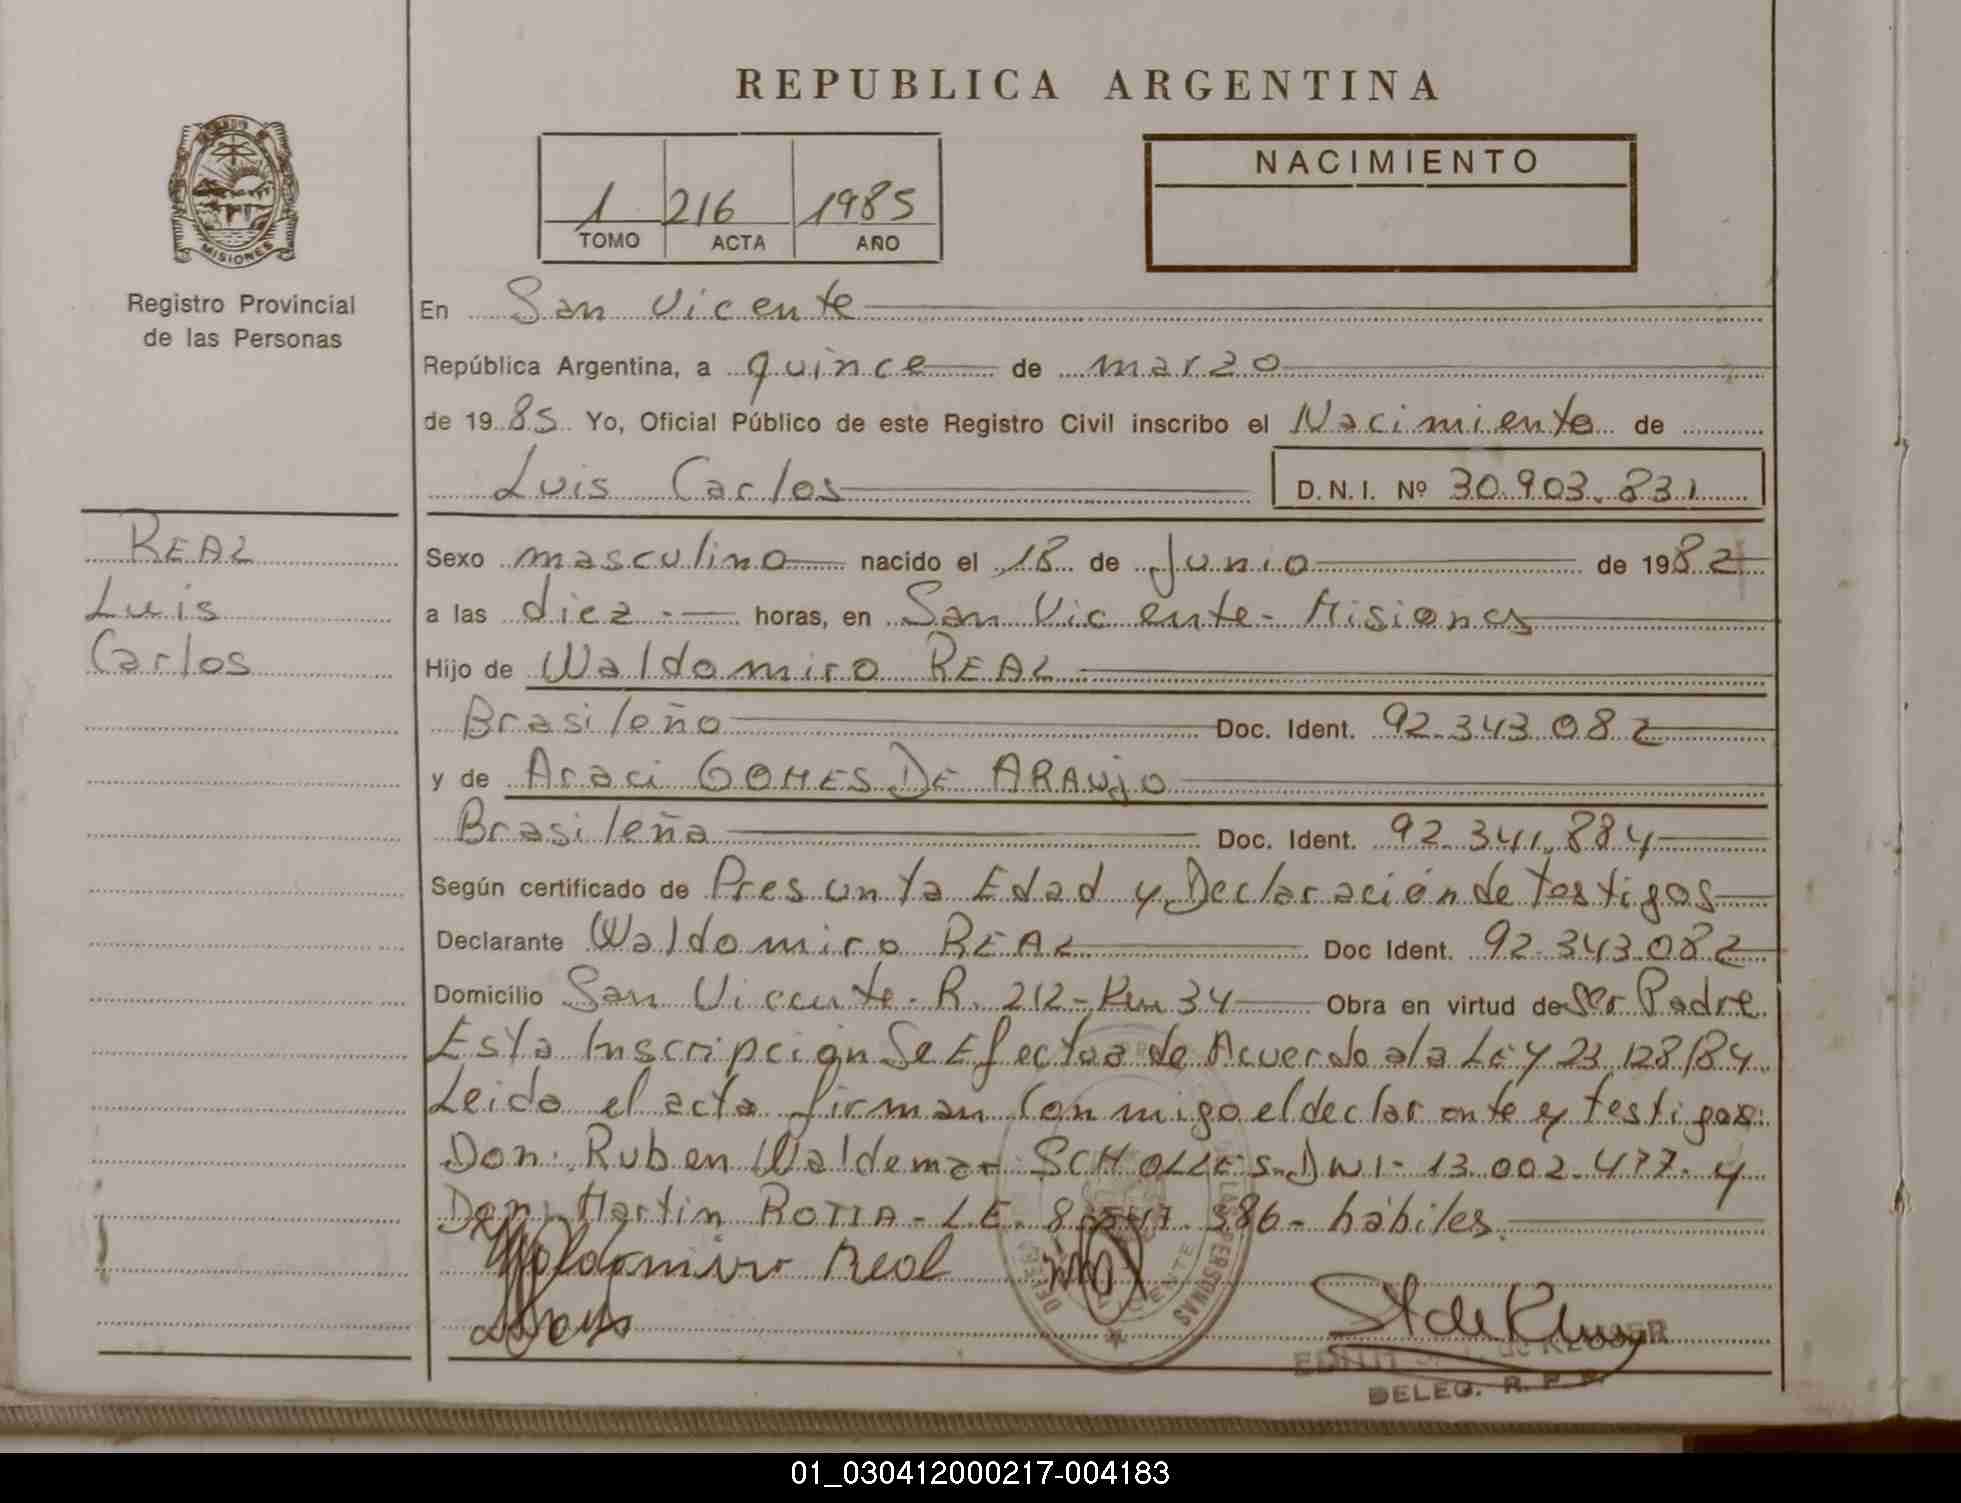 REPUBLICA ARGENTINA
NACIMIENTO
1 216 1985
TOMO ACTA AÑO
MISIONES
Registro Provincial
de las Personas
En San Vicente
República Argentina, a quince de marzo
de 1985 Yo, Oficial Público de este Registro Civil inscribo el Nacimiento de
Luis Carlos D.N.I. Nº 30.903.831
REAL
Luis
Carlos
Sexo masculino nacido el 18 de Junio de 1982
a las diez.- horas, en San Vicente - Misiones
Hijo de Waldomiro REAL
Brasileño Doc. Ident. 92.343.082
y de Araci GOMES DE ARAUjo
Brasileña Doc. Ident. 92.341.884
Según certificado de Presunta Edad y Declaración de testigos
Declarante Waldomiro REAL Doc Ident. 92.343.082
Domicilio San Vicente - R. 212 - Km 34 Obra en virtud de Ser Padre.
Esta Inscripción Se Efectua de Acuerdo a la LEY 23.128/84.
Leido el acta firman Con migo el declarante y testigos:
Don: Ruben Waldemar SCHOLLES - DNI - 13.002.477 - y
Don: Martin ROTTA - L.E. 8 386 - hábiles.
Waldomiro Real
DELEG. R. P. P.
01_030412000217-004183